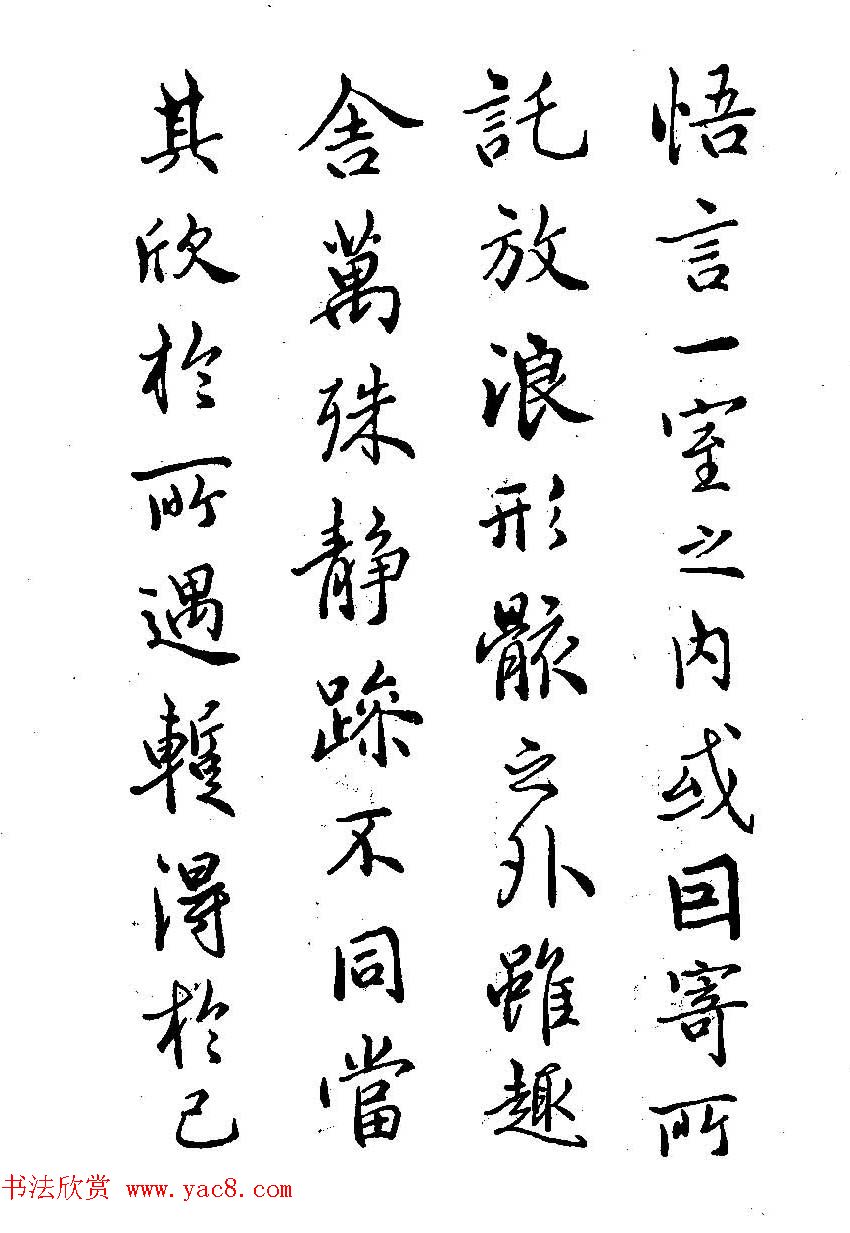 悟言一室之内或因寄所
託放浪形骸之外雖趣
舍萬殊静躁不同當
其欣於所遇蹔得於己
书法欣赏 www.yac8.com